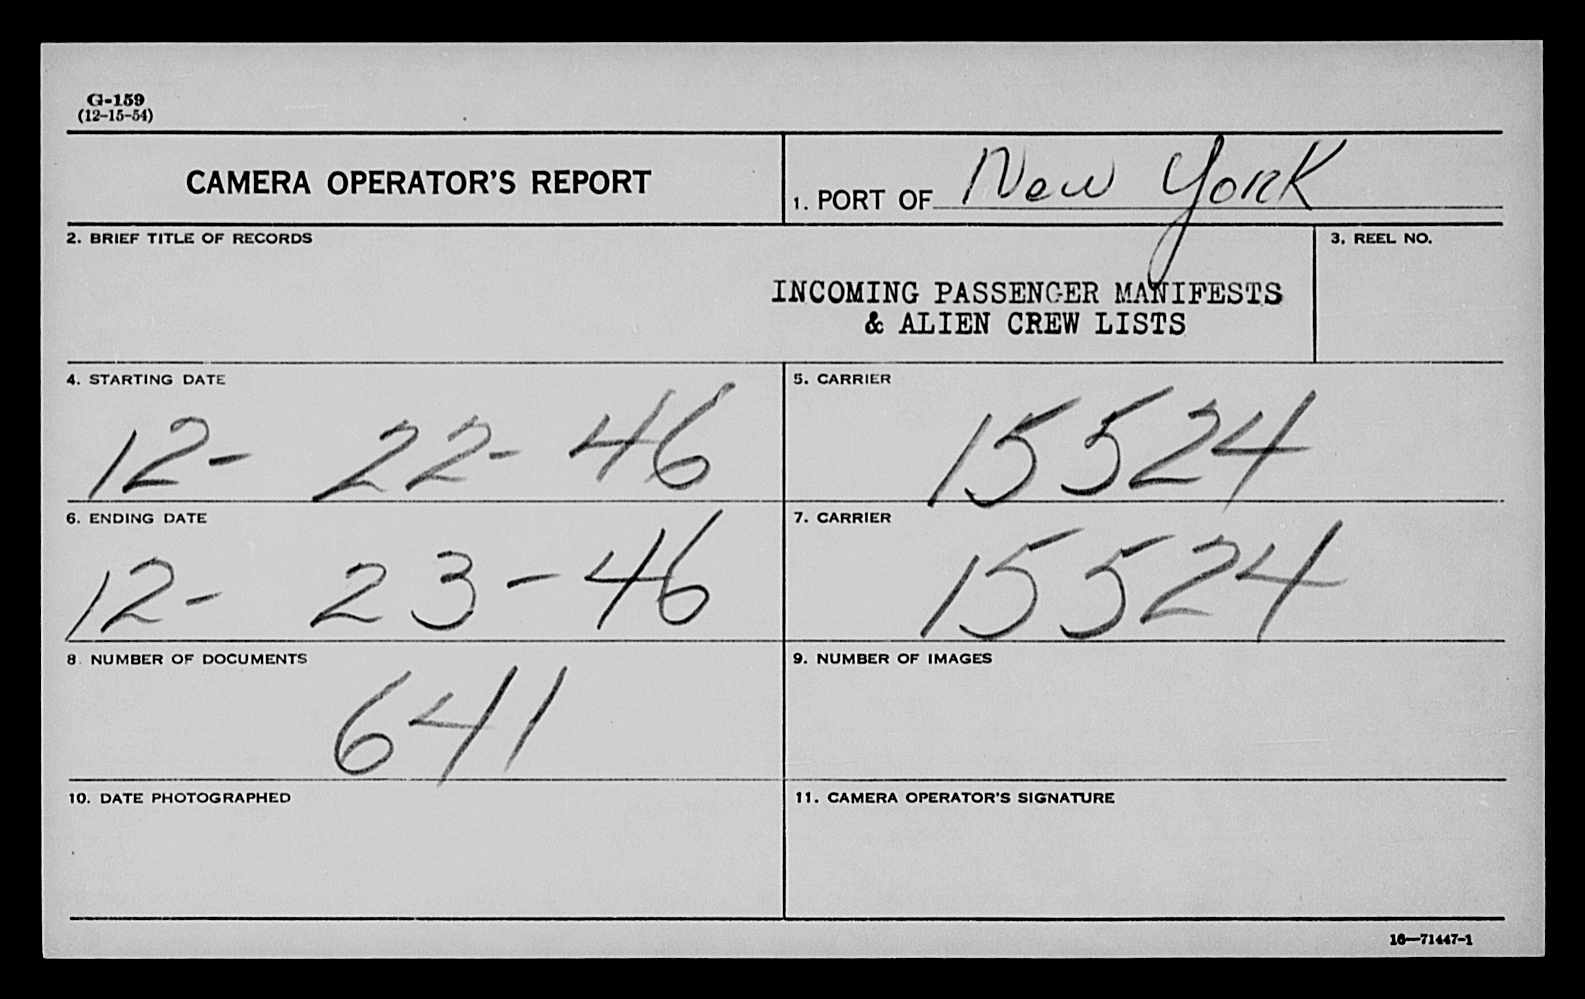 G-159
(12-15-54)
CAMERA OPERATOR'S REPORT
1. PORT OF New York
2. BRIEF TITLE OF RECORDS
INCOMING PASSENGER MANIFESTS
& ALIEN CREW LISTS
3. REEL NO.
4. STARTING DATE
12- 22-46
5. CARRIER
15524
6. ENDING DATE
12- 23-46
7. CARRIER
15524
8. NUMBER OF DOCUMENTS
641
9. NUMBER OF IMAGES
10. DATE PHOTOGRAPHED
11. CAMERA OPERATOR'S SIGNATURE
16—71447-1